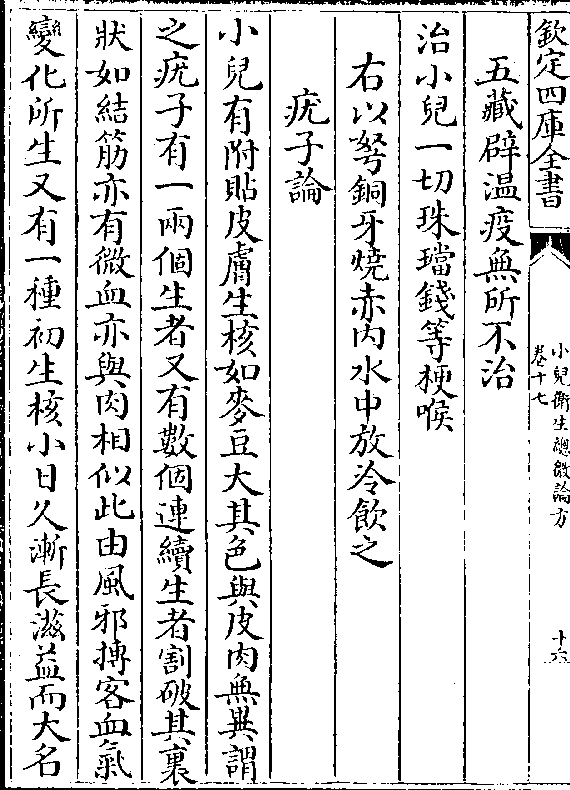 欽定四庫全書
小兒衛生總微論方
卷十七
十六
五藏辟溫疫無所不治
治小兒一切珠璫錢等梗喉
右以弩銅牙燒赤內水中放冷飲之
疣子論
小兒有附貼皮膚生核如麥豆大其色與皮肉無異謂
之疣子有一兩個生者又有數個連續生者割破其裏
狀如結筋亦有微血亦與肉相似此由風邪搏客血氣
變化所生又有一種初生核小日久漸長滋益而大名